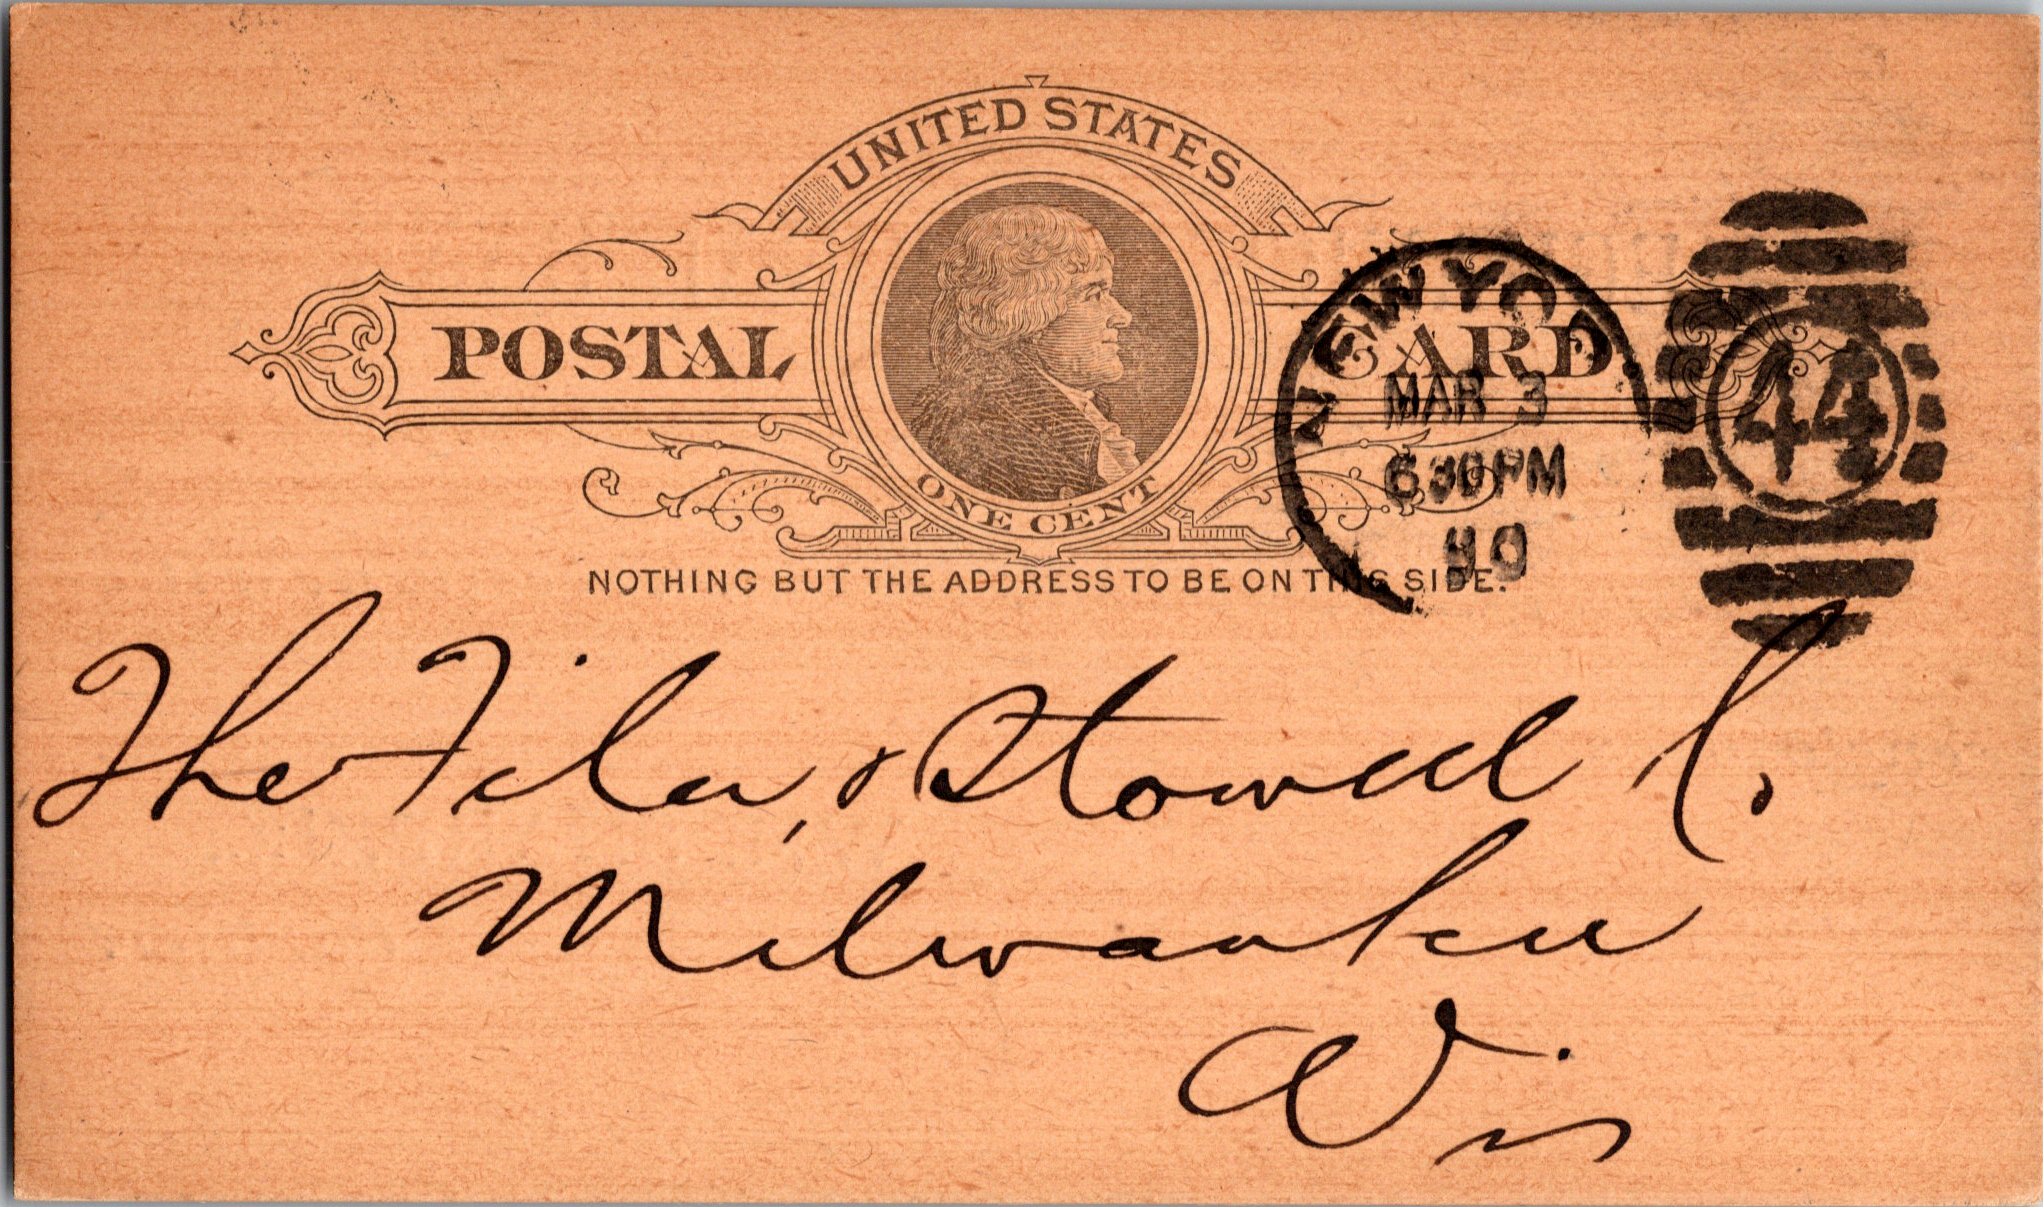 UNITED STATES
POSTAL CARD
ONE CENT
NOTHING BUT THE ADDRESS TO BE ON THIS SIDE.
NEW YOR
MAR 3
630PM
90
44
The Filer, & Stowell C.
Milwaukee
Wis